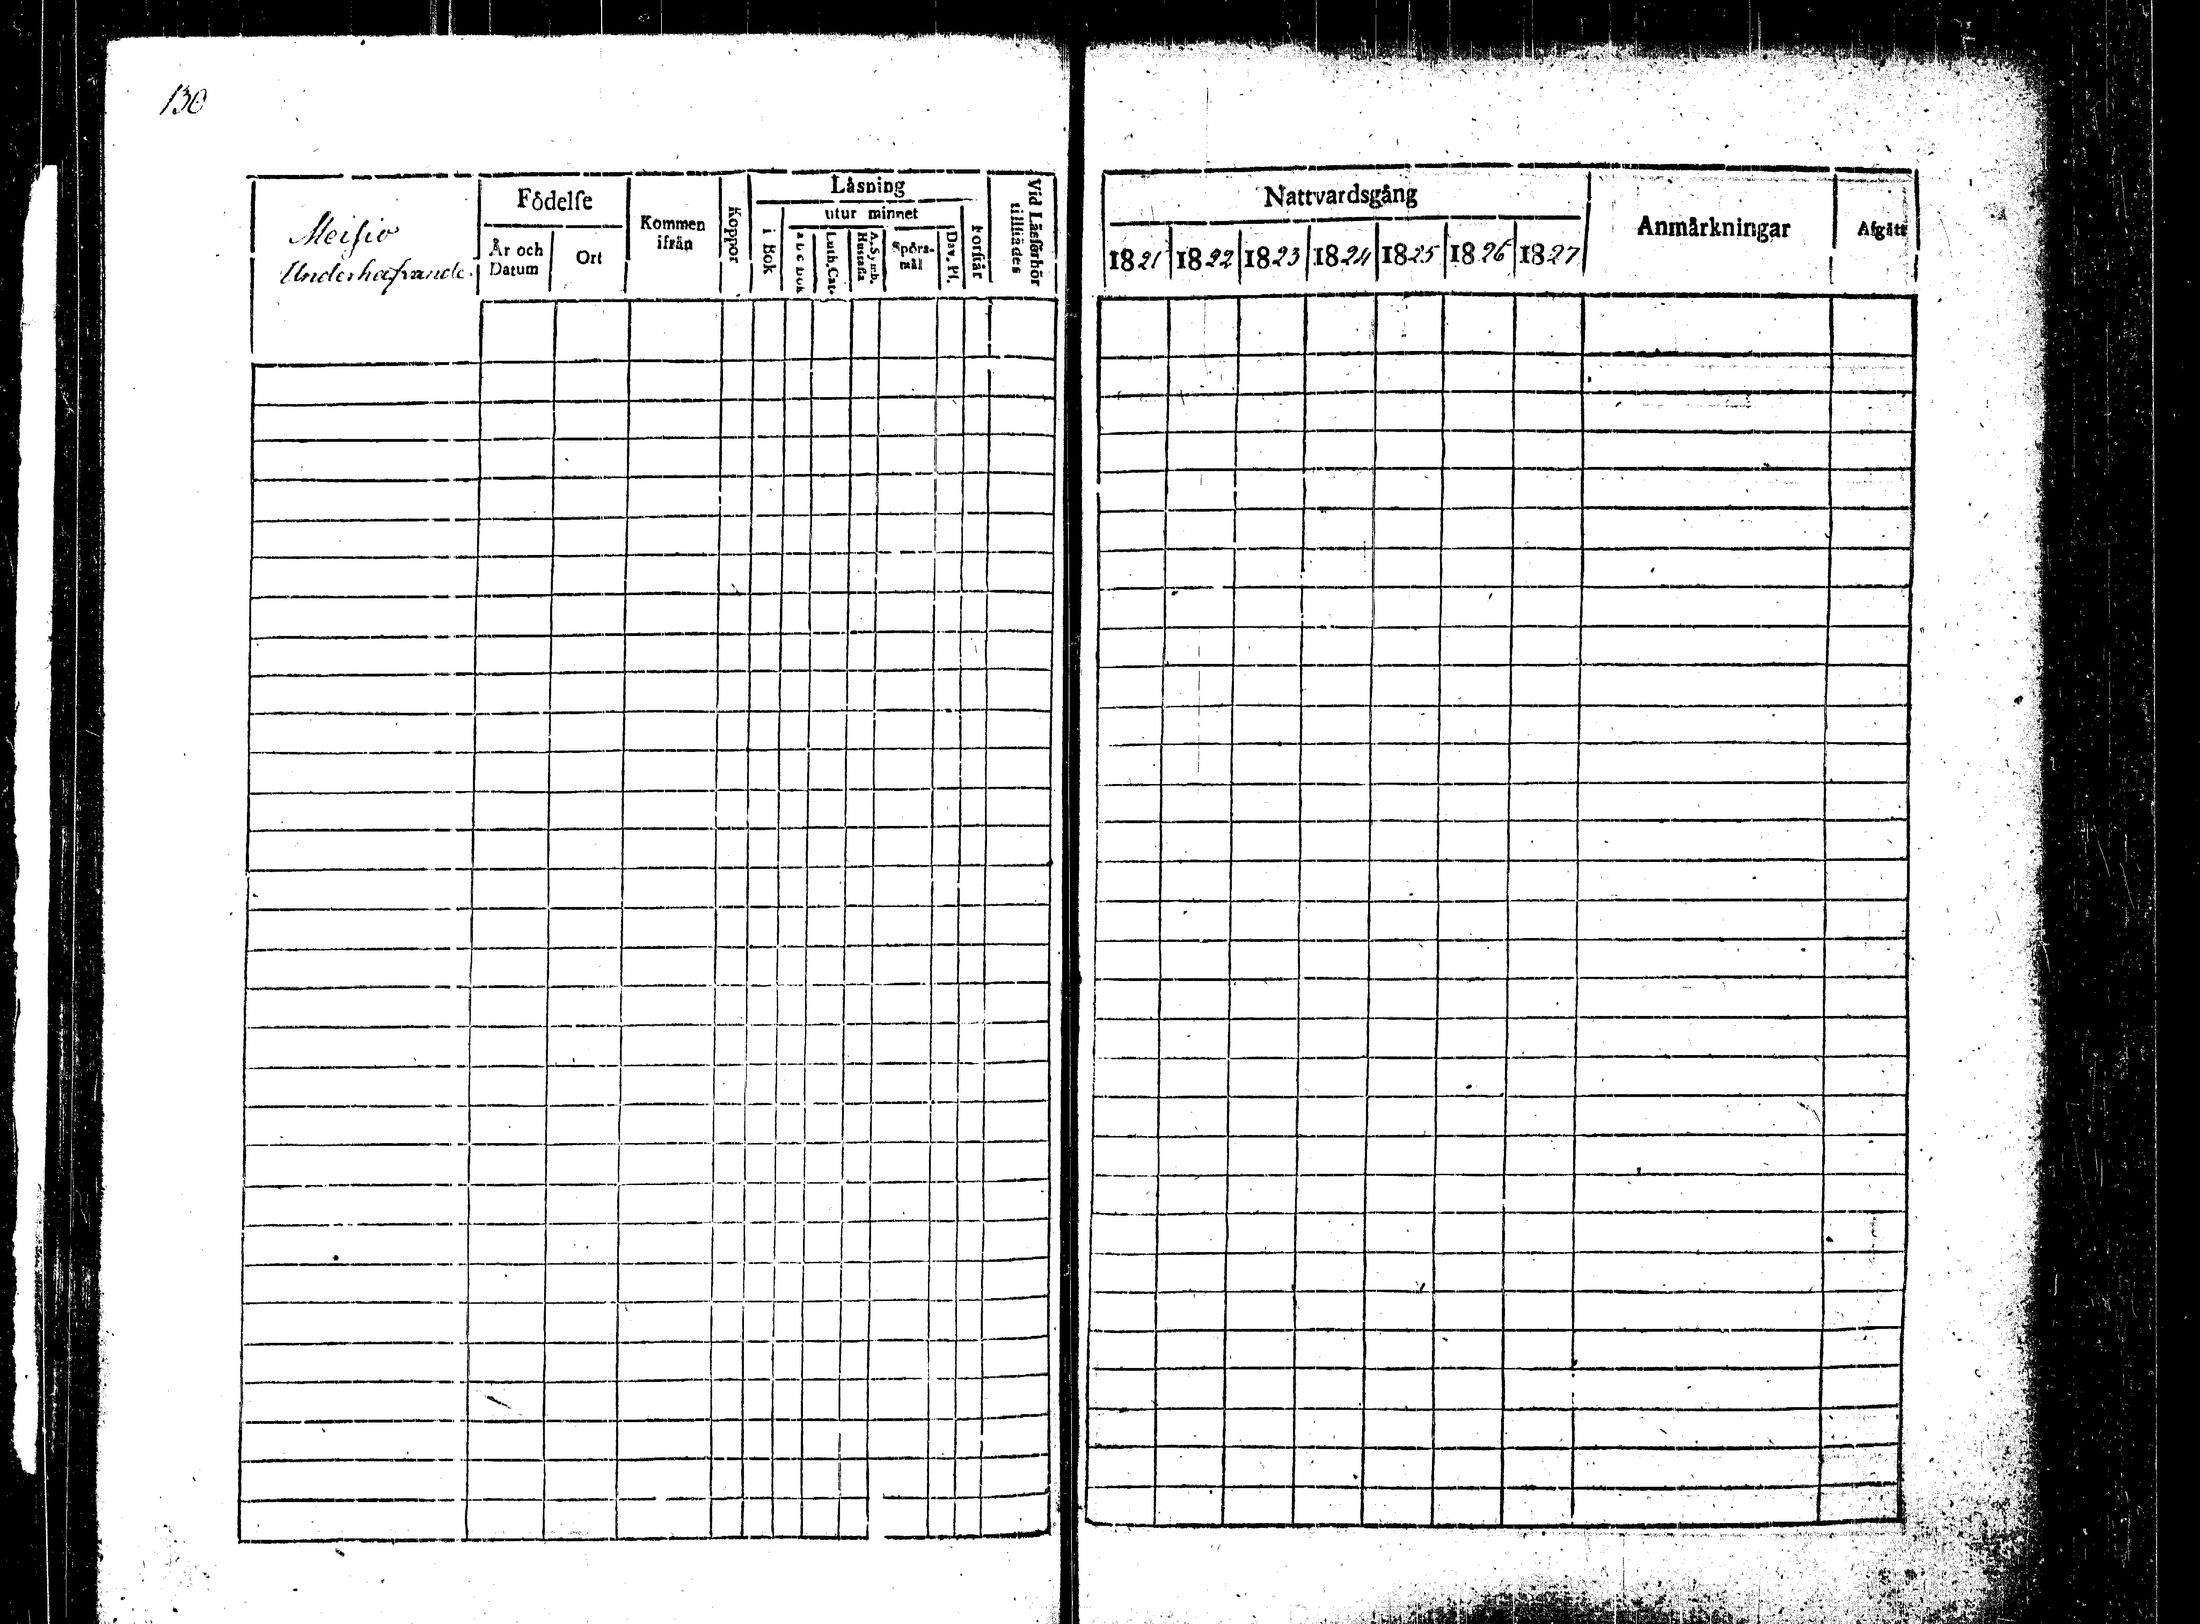 130
Meisio
Underhafvande
Födelse
År och Datum
Ort
Kommen ifrån
Koppor
Läsning
i Bok
utur minnet
a b c bok
Luth. Cat.
A. Symb. Hustafla
Spörs-mål
Dav. Ps.
Förstår
Vid Läsförhör tillstädes
Nattvardsgång
1821 1822 1823 1824 1825 1826 1827
Anmärkningar
Afgått